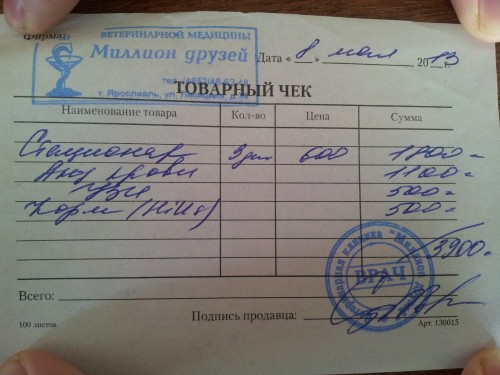 Фирма
ВЕТЕРИНАРНОЙ МЕДИЦИНЫ
Миллион друзей
г. Ярославль, ул.
Дата « 8 » мая 2013 г.
ТОВАРНЫЙ ЧЕК
Наименование товара Кол-во Цена Сумма
Стационар 3 дня 600 1800=
Ан. крови 1100=
УЗИ 500=
Корм (Hill's) 500=
3900=
Ветеринарная клиника "Миллион
ВРАЧ
Всего:
Подпись продавца:
100 листов Арт. 130015